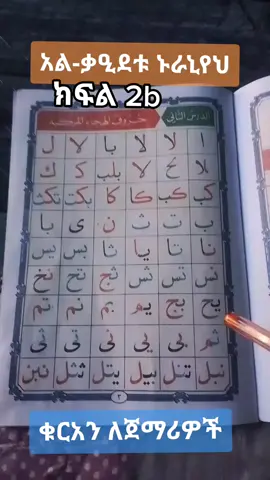 አል-ቃዒደቱ ኑራኒየህ
ክፍል 2b
الدرس الثاني حروف الهجاء المركبة
ا لا لا با لا ل
كب كب كا كا بكت تكث
ب ت ث ن ى يا
نا تا يا ثا بس يس
نس تس ثس ثج تح نخ
يح بج يم بم نم تم
ثم بى يى نى تى ثى
نبل تنل بيل يتل ثنل نبن
٢
ቁርአን ለጀማሪዎች